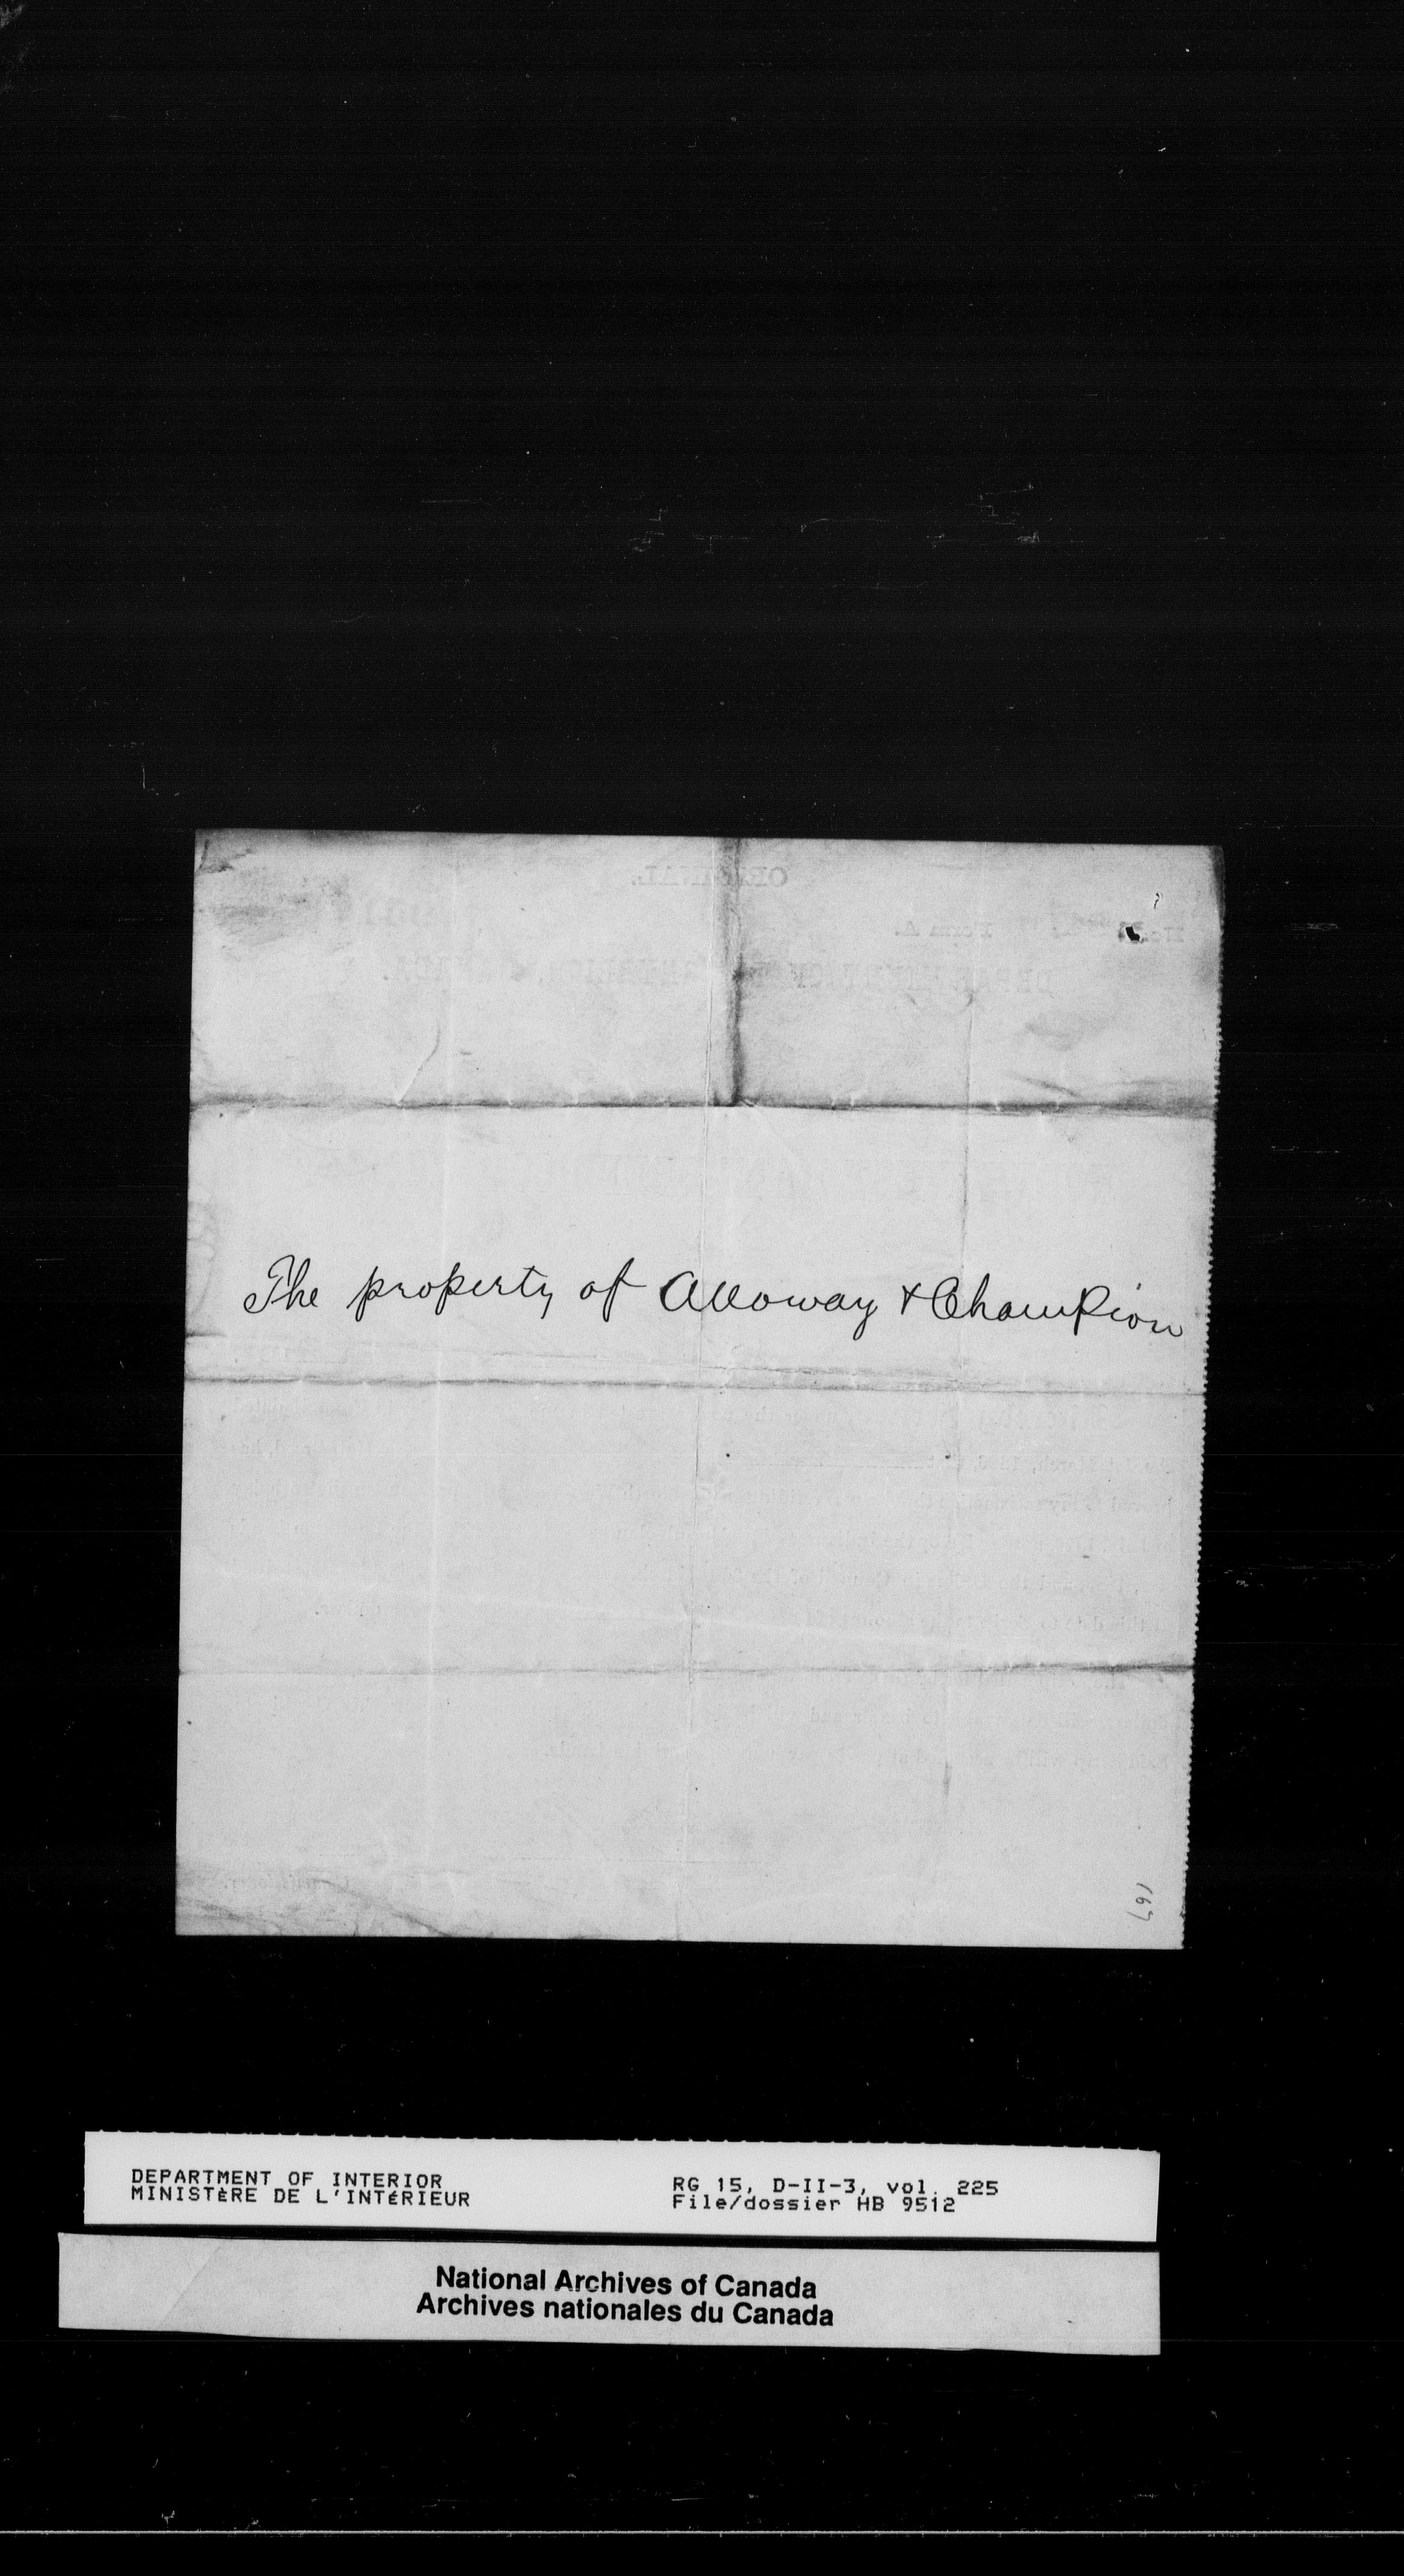 ORIGINAL.
Form A.
The property of Alloway & Champion
167
DEPARTMENT OF INTERIOR
MINISTÈRE DE L'INTÉRIEUR
RG 15, D-II-3, vol. 225
File/dossier HB 9512
National Archives of Canada
Archives nationales du Canada